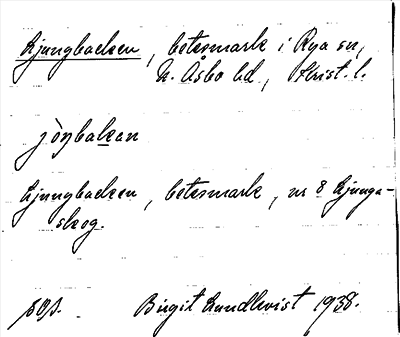 Ljungbacken, betesmark i Rya sn,
N. Åsbo hd, Krist. l.
jòŋbakan
Ljungbacken, betesmark, nr 8 Ljunga-
skog.
Birgit Lundkvist 1938.